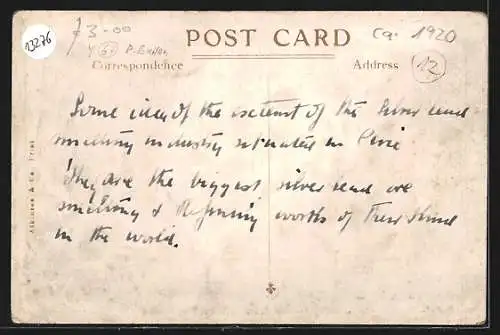 13276
£3-00
Ca. 1920
POST CARD
Correspondence
Address
12
Some idea of the extent of the Silver lead
smelting industry situated in Pirie
They are the biggest silver lead ore
smelting & Refining works of their kind
in the world.
Atkinson & Co. Print